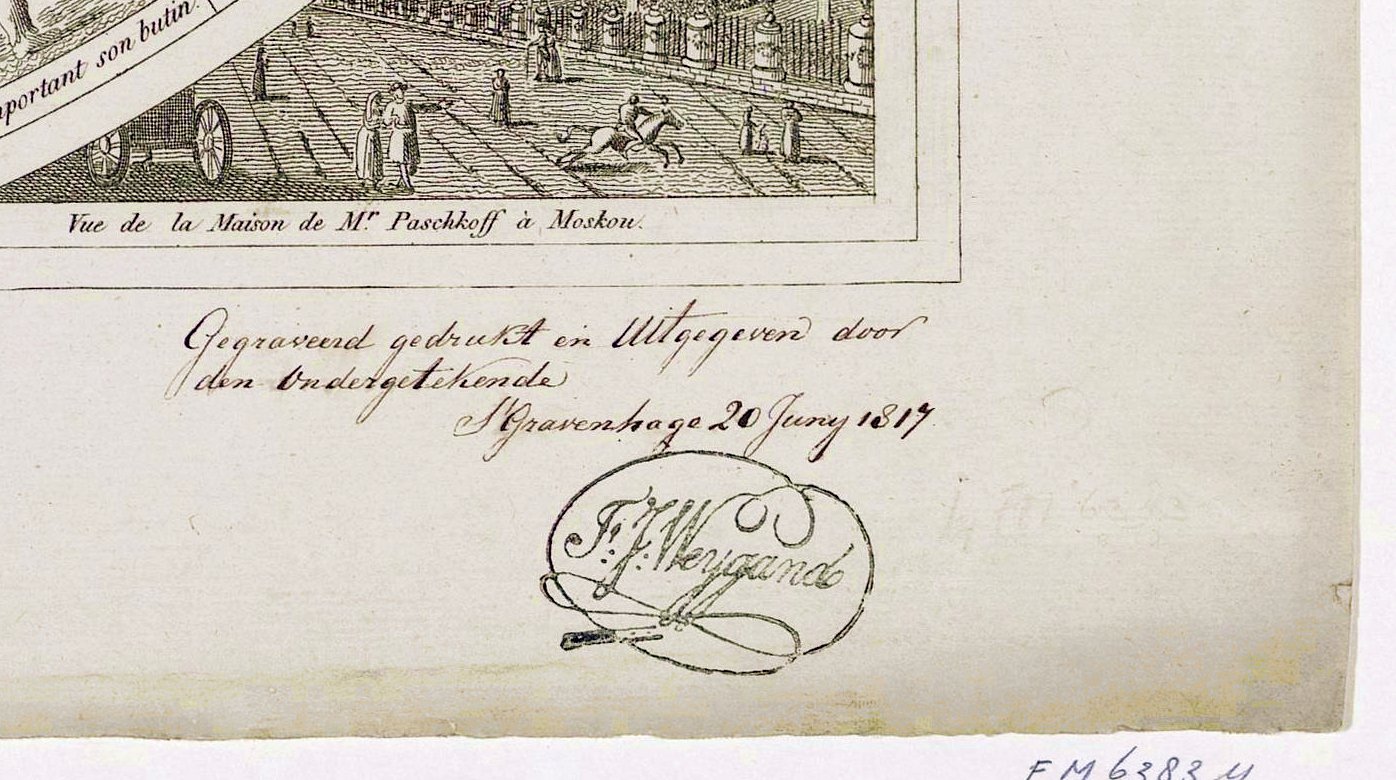 portant son butin.
Vue de la Maison de Mr. Paschkoff à Moskou.
Gegraveerd gedrukt en Uitgegeven door
den Ondergetekende
S'Gravenhage 20 Juny 1817
F: J: Weygand
FM 6383